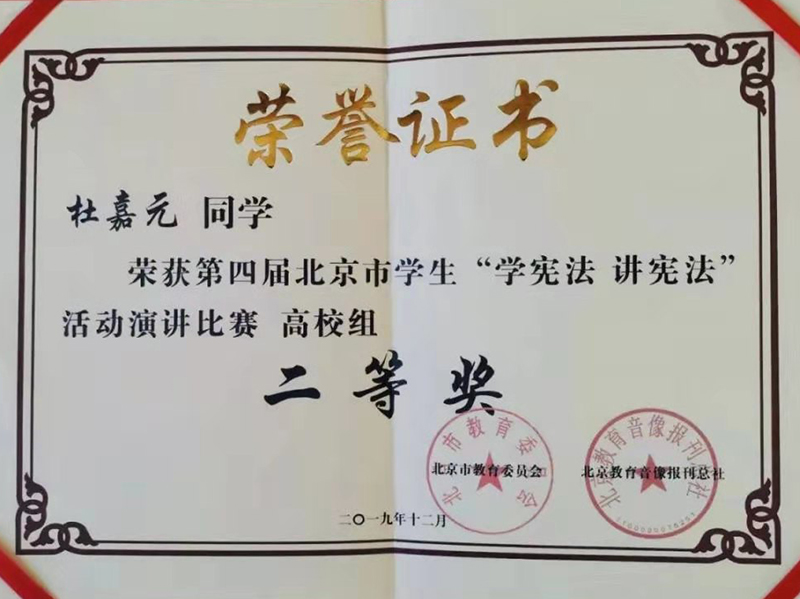 荣誉证书
杜嘉元 同学
荣获第四届北京市学生“学宪法 讲宪法”
活动演讲比赛 高校组
二等奖
北京市教育委员会
北京市教育委员会
北京教育音像报刊总社
北京教育音像报刊总社
二〇一九年十二月